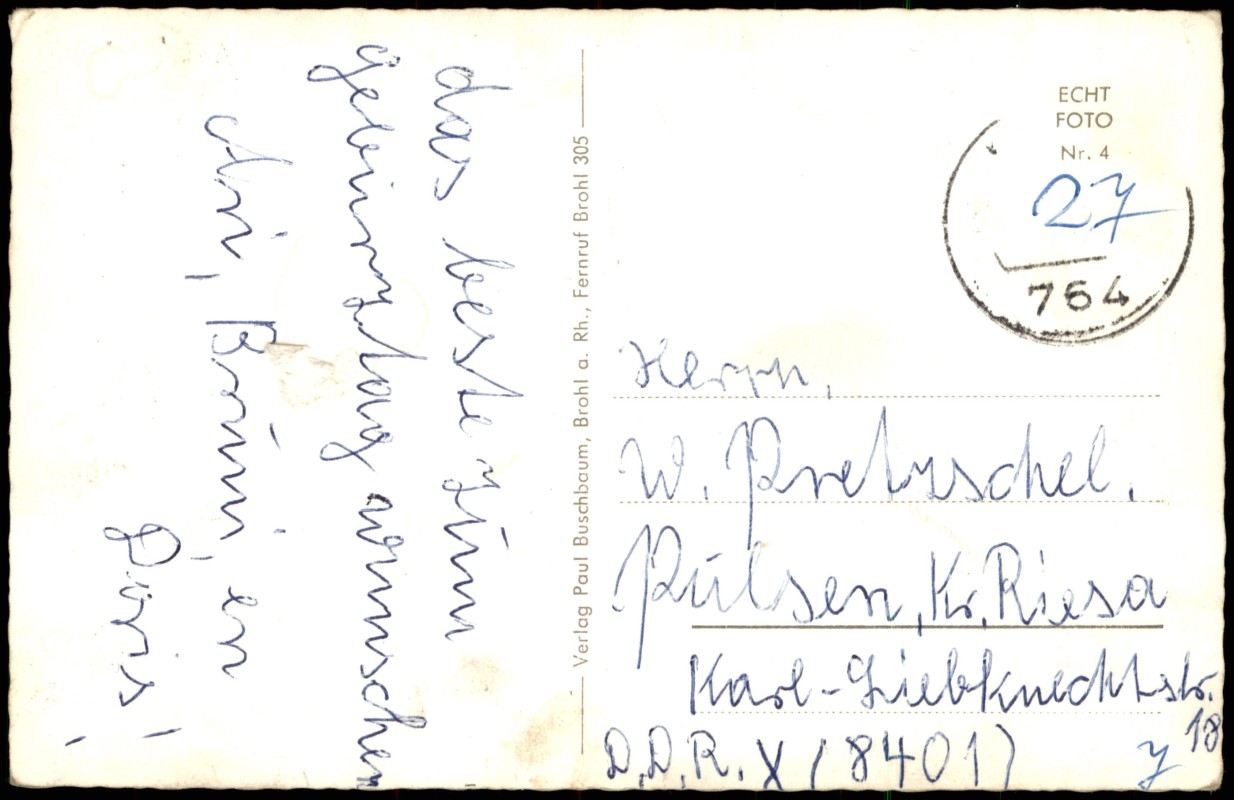 das beste zum
geburztag wünschen
Ari, Bärni, en
Doris!
Verlag Paul Buschbaum, Brohl a. Rh., Fernruf Brohl 305
ECHT
FOTO
Nr. 4
27
764
Herrn,
W. Pretzschel.
Pülsen, Kr. Riesa
Karl-Liebknechtstr.
18
D.D.R. X (8401)
y